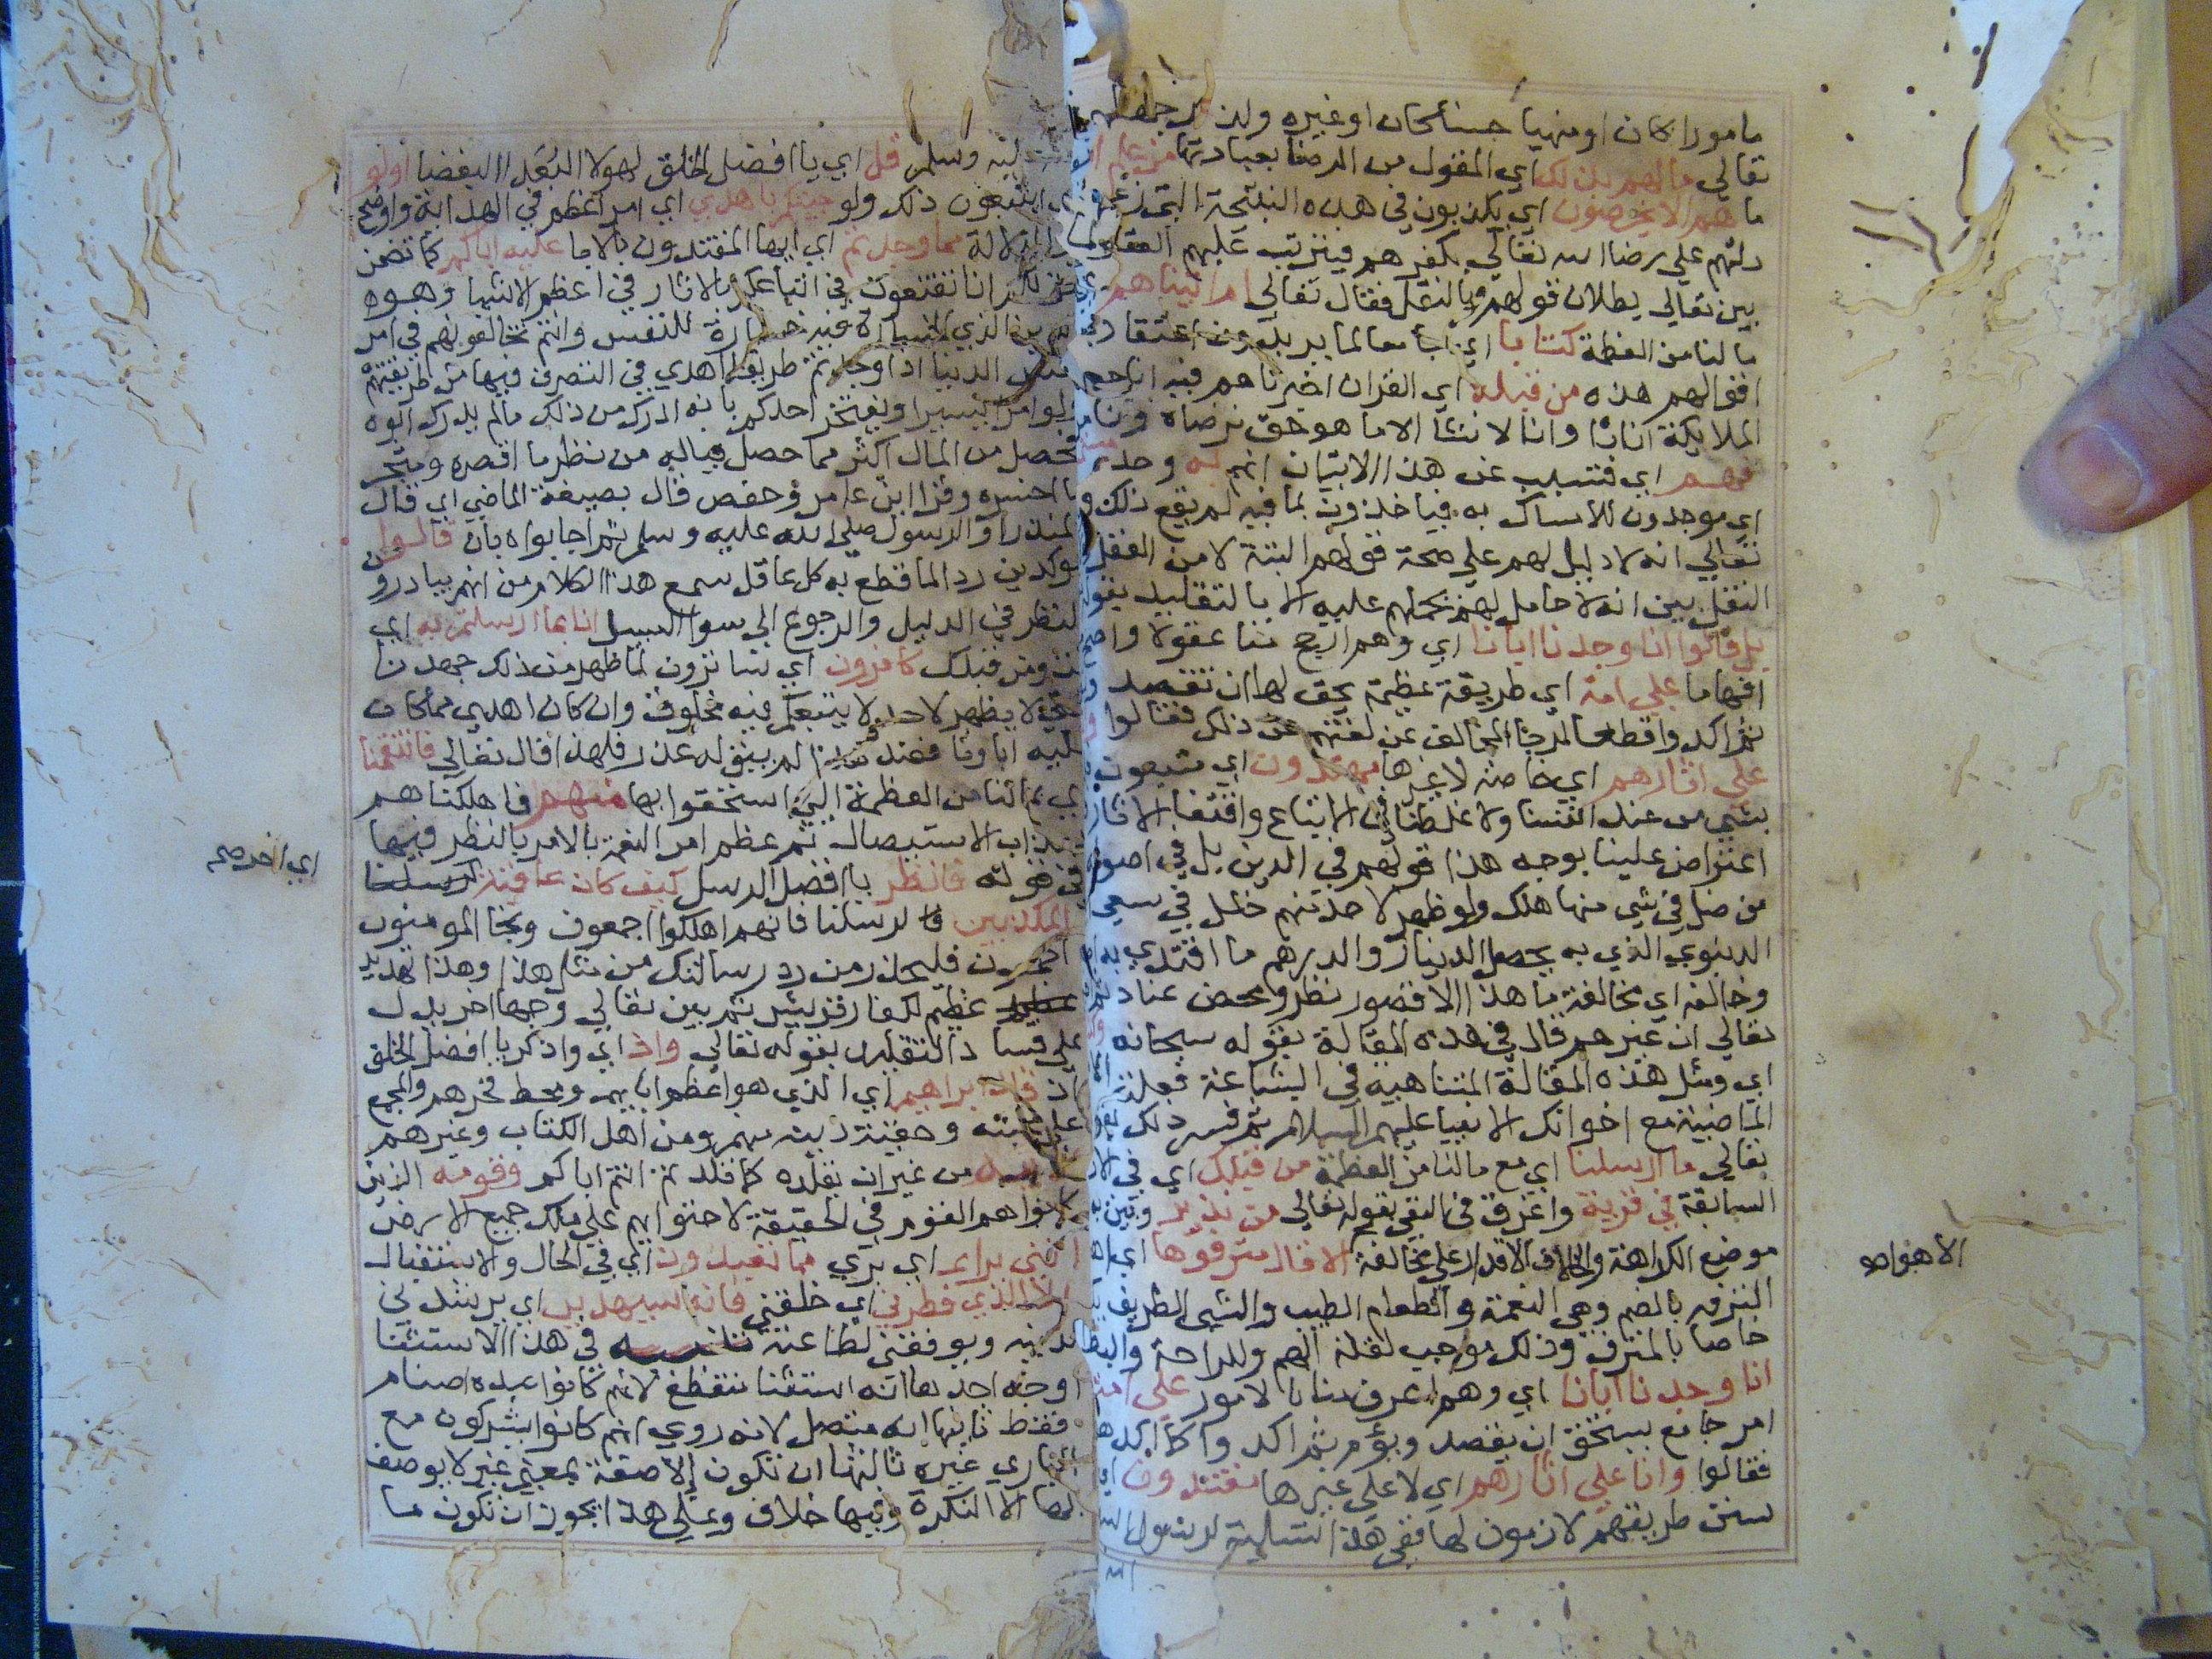 مامورا كان اومنهيا حسنا كان اوغيره ولذلك جهلهم
تعالي مالهم بذلك اي المقول من الرضا بعبادتها من علم ان
ما هم الا يخرصون اي يكذبون في هذه النتيجة التي زعموا
دلتهم علي رضا الله تعالي بكفرهم فيترتب عليهم العقاب
بين تعالي بطلان قولهم بالنقل فقال تعالي ام اتيناهم
مالنا من العظمة كتابا اي جامعا لما يريدون اعتقاده
اقوالهم هذه من قبله اي القران اخبرناهم فيه انا جعلنا
الملايكة اناثا وانا لا نشا الا ما هو حق نرضاه ونامر
فهم اي فتسبب عن هذا الايتان انهم به وحده
اي موجدون للامساك به فياخذون بما فيه لم يقع ذلك
تعالي انه لا دليل لهم علي صحة قولهم البتة لا من العقل
النقل بين انه لا حامل لهم يحملهم عليه الا بالتقليد بقوله
بل قالوا انا وجدنا ابانا اي وهم ارجح منا عقولا واصح
افهاما علي امة اي طريقة عظيمة يحق لها ان تقصد
ثم اكد واقطعا لرجا المخالف عن لفتهم عن ذلك فقالوا
علي اثارهم اي خاصة لا غيرها مهتدون اي متبعون
بشي من عند انفسنا ولا غلطنا في الاتباع واقتفا الاثار
اعتراض علينا بوجه هذا قولهم في الدين بل في اصوله
من ضل في شي منها هلك ولو ظهر لاحد منهم خلل في سعي
الدنيوي الذي به يحصل الدينار والدرهم ما اقتدي به
وخالفه اي مخالفة ما هذا الا قصور نظر ومحض عناد ثم
تعالي ان غيرهم قال في هذه المقالة بقوله سبحانه
اي ومثل هذه المقالة المتناهية في البشاعة فعلت
الماضية مع اخوانك الانبيا عليهم السلام ثم فسر ذلك بقوله
تعالي ما ارسلنا اي مع مالنا من العظمة من قبلك اي في
السابقة في قرية واغرق في النفي بقوله تعالي من نذير وبين به
موضع الكراهة والخلاف الاقدار علي مخالفة الا قال مترفوها
الترفه بالضم وهي النعمة والطعام الطيب والشي الظريف
خاصا بالمترف وذلك موجب لقلة الهم وللراحة والبطالة
انا وجدنا ابانا اي وهم اعرف منا بالامور علي امة
امر جامع يستحق ان يقصد ويؤم ثم اكد واكا
فقالوا وانا علي اثارهم اي لا علي غيرها مقتدون
سنن طريقهم لازمون لها ففي هذا تسلية لرسول
الله
الاهواء
وسلم قل اي يا افضل الخلق لهولا البعدا البغضا اولو
اي اتتبعون ذلك ولو جيتكم باهدي اي امر اعظم في الهداية واوضح
الدلالة مما وجدتم اي ايها المقتدون بالابا عليه اباكم كما تضمن
انا تقتفون في اتباعكم بالاثار في اعظم الاشيا وهو
الدين الذي الخسارة فيه خسارة للنفس وانتم تخالفونهم في امر
الدنيا اذا وجدتم طريقا اهدي في التصرف فيها من طريقتهم
ولو امرا يسيرا ويفتخر احدكم بانه ادرك من ذلك مالم يدرك ابوه
تحصل من المال اكثر مما حصل فياله من نظر ما اقصره ومتجر
ما اخسره وقرا ابن عامر وحفص قال بصيغة الماضي اي قال
المنذر او الرسول صلي الله عليه وسلم ثم اجابواه بان قالوا
موكدين ردا لما قطع به كل عاقل سمع هذا الكلام من انهم يبادرون
النظر في الدليل والرجوع الي سوا السبيل انا بما ارسلتم به اي
ومن قبلك كافرون اي ساترون لما ظهر من ذلك جهدنا
حتي لا يظهر لاحد ولا يتبعكم فيه مخلوق وان كان اهدي مما كان
عليه اباونا فعند هذا لم يبق له عذر فلهذا قال تعالي فانتقمنا
اي بمالنا من العظمة التي استحقوا بها منهم فاهلكناهم
بعذاب الاستيصال ثم عظم امر النقمة بالامر بالنظر فيها
في قوله فانظر يا افضل الرسل كيف كان عاقبة رسلنا
المكذبين لرسلنا فانهم اهلكوا اجمعون ونجا المومنون
اجمعون فليحذر من رد رسالتك من مثل هذا وهذا تهديد
عظيم لكفار قريش ثم بين تعالي وجها اخر يدل
علي فساد التقليد بقوله تعالي واذ اي واذكر يا افضل الخلق
اذ قال ابراهيم اي الذي هو اعظم ابايهم ومحط فخرهم والمجمع
علي محبته وحقية دينه منهم ومن اهل الكتاب وغيرهم
لابيه من غير ان يقلده كما قلدتم انتم اباكم وقومه الذين
كانوا هم القوم في الحقيقة لاحتوايهم علي ملك جميع الارض
انني براء اي بري مما تعبدون اي في الحال والاستقبال
الا الذي فطرني اي خلقني فانه سيهدين اي يرشدني
لدينه ويوفقني لطاعته تنبيه في هذا الاستثنا
اوجه احدها انه استثنا منقطع لانهم كانوا عبدة اصنام
فقط ثانيها انه متصل لانه روي انهم كانوا يشركون مع
الباري غيره ثالثها ان تكون الا صفة بمعني غير لا يوصف
بها الا النكرة وفيها خلاف وعلي هذا يجوز ان تكون ما
اي اخر صح